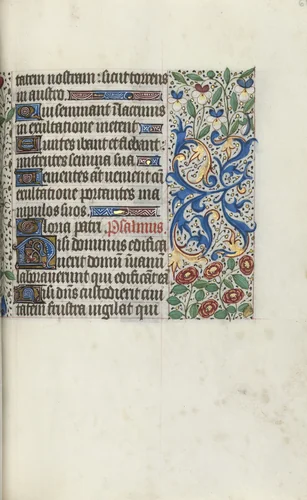 tatem nostram: sicut torrens
in austro
Qui seminant i lacrimis
in exultatione metent
Euntes ibant et flebant:
mittentes semina sua
Venientes aut venient cū
exultatione portantes ma
nipulos suos.
Gloria patri. Psalmus.
Nisi dominus edifica
uerit domū i uanū
laborauerunt qui edificāt eā
Nisi dn̄s custodierit ciui
tatem frustra uigilat qui